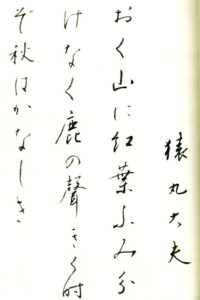 猿丸大夫
おく山に紅葉ふみ分
けなく鹿の聲きく時
ぞ秋はかなしき